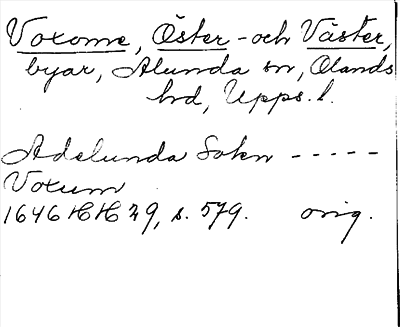 Voxome, Öster- och Väster,
byar, Alunda sn, Olands
hd, Upps. l.
Adelunda Sokn -----
Voxum
1646 HH 29, s. 579. orig.